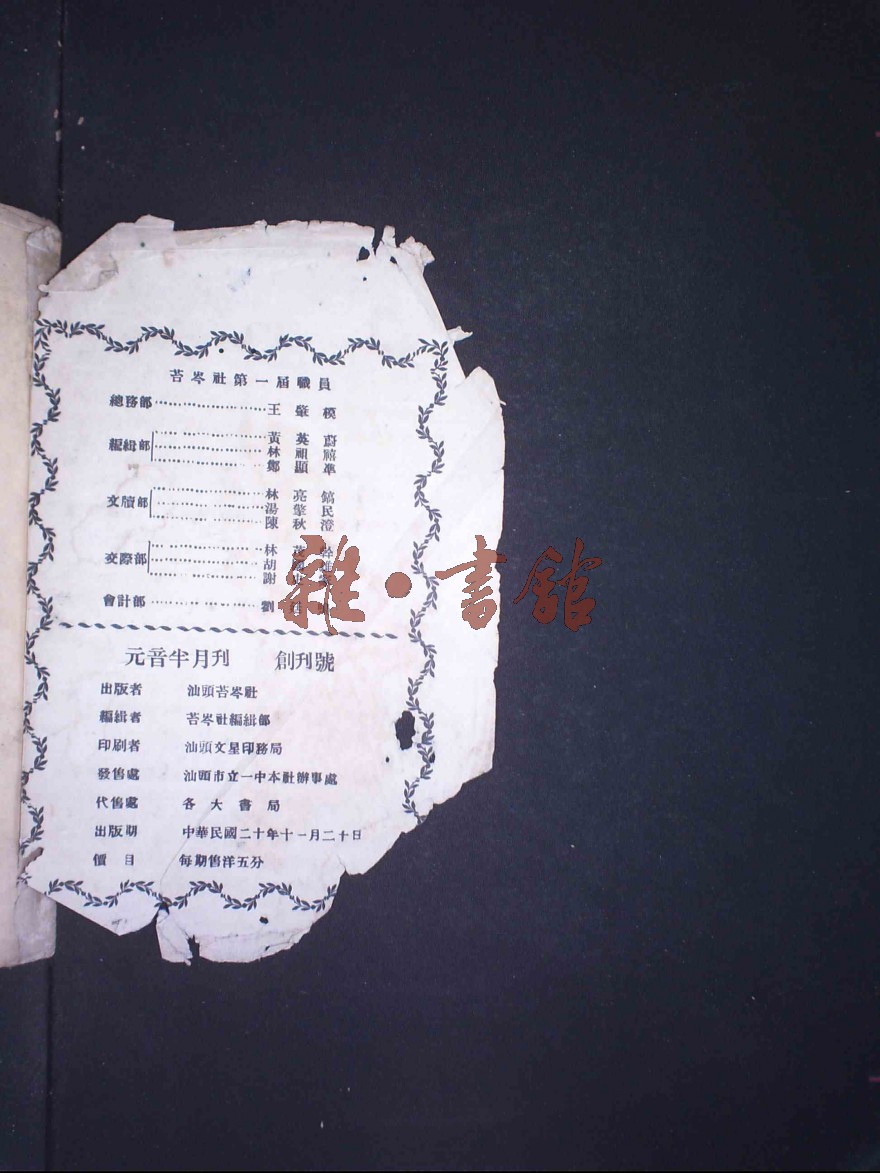 苔岑社第一届職員
總務部 王肇模
編緝部 黃英蔚
林祖
鄭顯準
文牘部 林亮鎬
湯擎民
陳秋澄
交際部 林
胡
謝
會計部 劉
雜·書館
元音半月刊 創刊號
出版者 汕頭苔岑社
編緝者 苔岑社編緝部
印刷者 汕頭文星印務局
發售處 汕頭市立一中本社辦事處
代售處 各大書局
出版期 中華民國二十年十一月二十日
價目 每期售洋五分